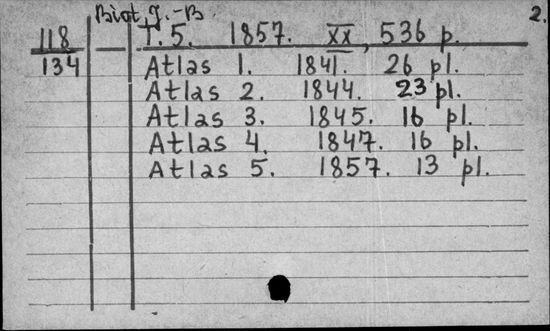 Biot J.-B. 2.
118 T. 5. 1857. XX, 536 p.
134 Atlas 1. 1841. 26 pl.
Atlas 2. 1844. 23 pl.
Atlas 3. 1845. 16 pl.
Atlas 4. 1847. 16 pl.
Atlas 5. 1857. 13 pl.